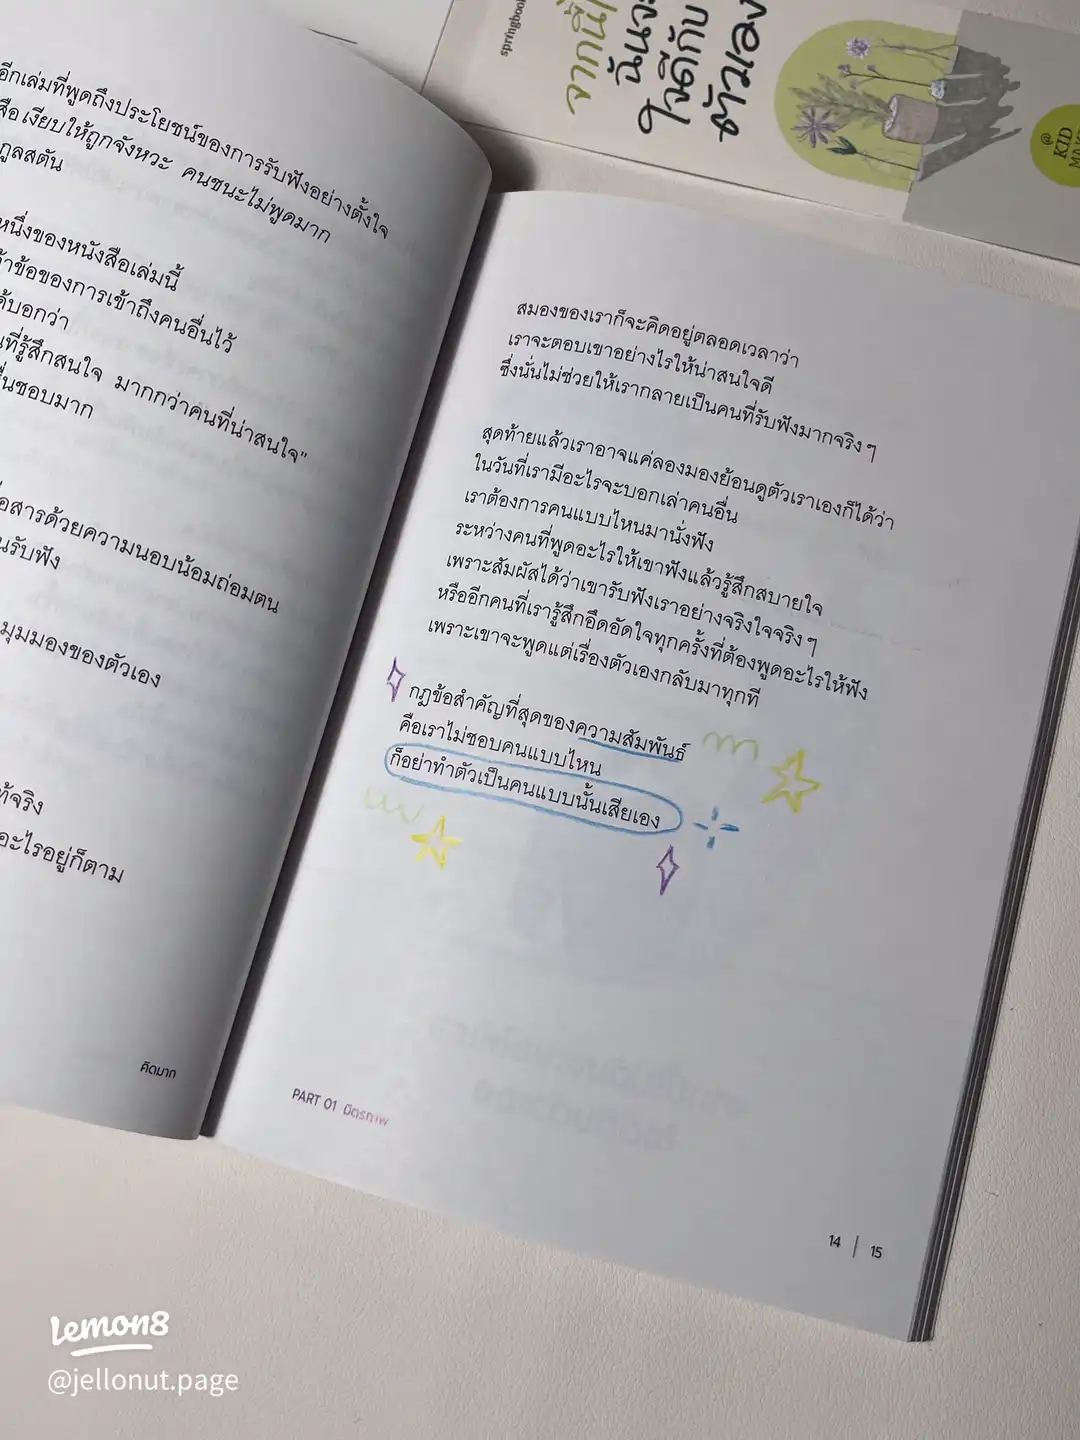 อีกเล่มที่พูดถึงประโยชน์ของการรับฟังอย่างตั้งใจ
สือ เงียบให้ถูกจังหวะ คนชนะไม่พูดมาก
กูลสตัน
หนึ่งของหนังสือเล่มนี้
ข้อของการเข้าถึงคนอื่นไว้
บอกว่า
ที่รู้สึกสนใจ มากกว่าคนที่น่าสนใจ"
ชอบมาก
สารด้วยความนอบน้อมถ่อมตน
รับฟัง
มุมมองของตัวเอง
จริง
อะไรอยู่ก็ตาม
คิดมาก
springbook
จากนี้
ฉันจะ
ใจดีกับ
ตัวเอง
@
KID
สมองของเราก็จะคิดอยู่ตลอดเวลาว่า
เราจะตอบเขาอย่างไรให้น่าสนใจดี
ซึ่งนั่นไม่ช่วยให้เรากลายเป็นคนที่รับฟังมากจริงๆ
สุดท้ายแล้วเราอาจแค่ลองมองย้อนดูตัวเราเองก็ได้ว่า
ในวันที่เรามีอะไรจะบอกเล่าคนอื่น
เราต้องการคนแบบไหนมานั่งฟัง
ระหว่างคนที่พูดอะไรให้เขาฟังแล้วรู้สึกสบายใจ
เพราะสัมผัสได้ว่าเขารับฟังเราอย่างจริงใจจริงๆ
หรืออีกคนที่เรารู้สึกอึดอัดใจทุกครั้งที่ต้องพูดอะไรให้ฟัง
เพราะเขาจะพูดแต่เรื่องตัวเองกลับมาทุกที
กฎข้อสำคัญที่สุดของความสัมพันธ์
คือเราไม่ชอบคนแบบไหน
ก็อย่าทำตัวเป็นคนแบบนั้นเสียเอง
PART 01 มิตรภาพ
14 | 15
Lemon8
@jellonut.page